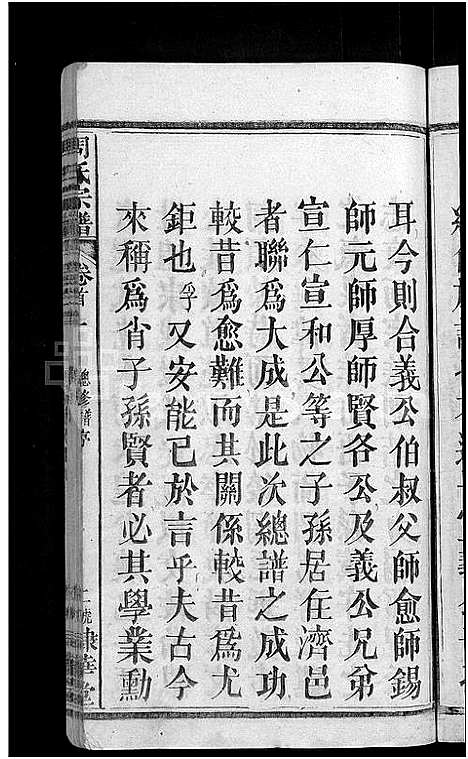 耳今則合義公伯叔父師愈師錫
師元師厚師賢各公及義公兄弟
宣仁宣和公等之子孫居在濟邑
者聯為大成是此次總譜之成功
較昔為愈難而其關係較昔為尤
鉅也孚又安能已於言乎夫古今
來稱為肖子孫賢者必其學業勳
周氏宗譜
卷首一
總修譜序